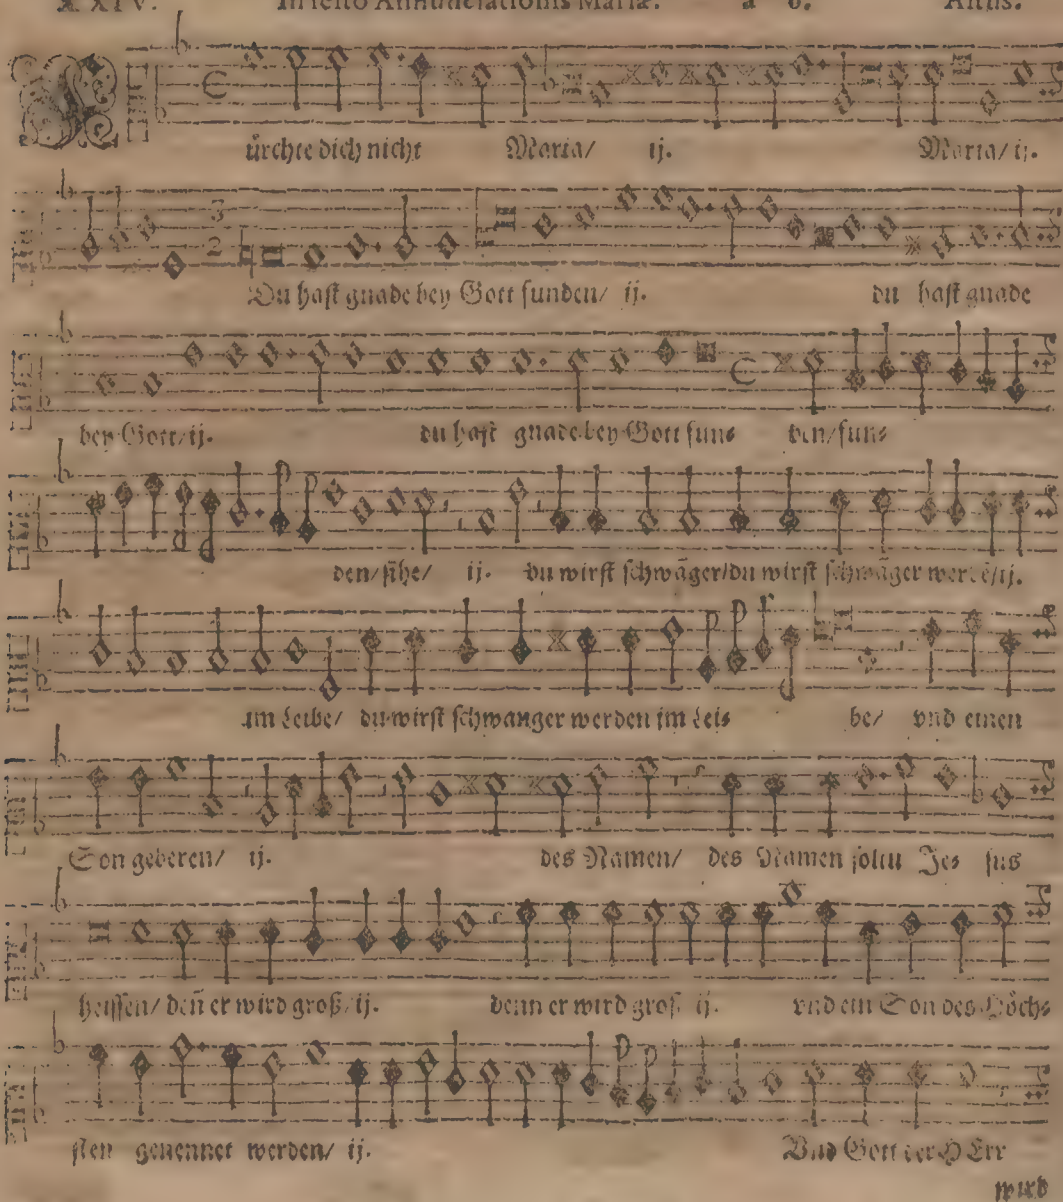 XXIV. In festo Annunciationis Mariæ. à 6. Altus.
Fürchte dich nicht Maria/ ij. Maria/ ij.
Du hast gnade bey Gott funden/ ij. du hast gnade
bey Gott/ ij. du hast gnade bey Gott fun- den/ fun-
den/ sihe/ ij. du wirst schwãger/ du wirst schwãger werdẽ/ ij.
im Leibe/ du wirst schwanger werden im Lei- be/ vnd einen
Son geberen/ ij. des Namen/ des Namen soltu Je- sus
heissen/ deñ er wird groß/ ij. denn er wird groß/ ij. vnd ein Son des Höch-
sten genennet werden/ ij. Vnd Gott der HErr
wird